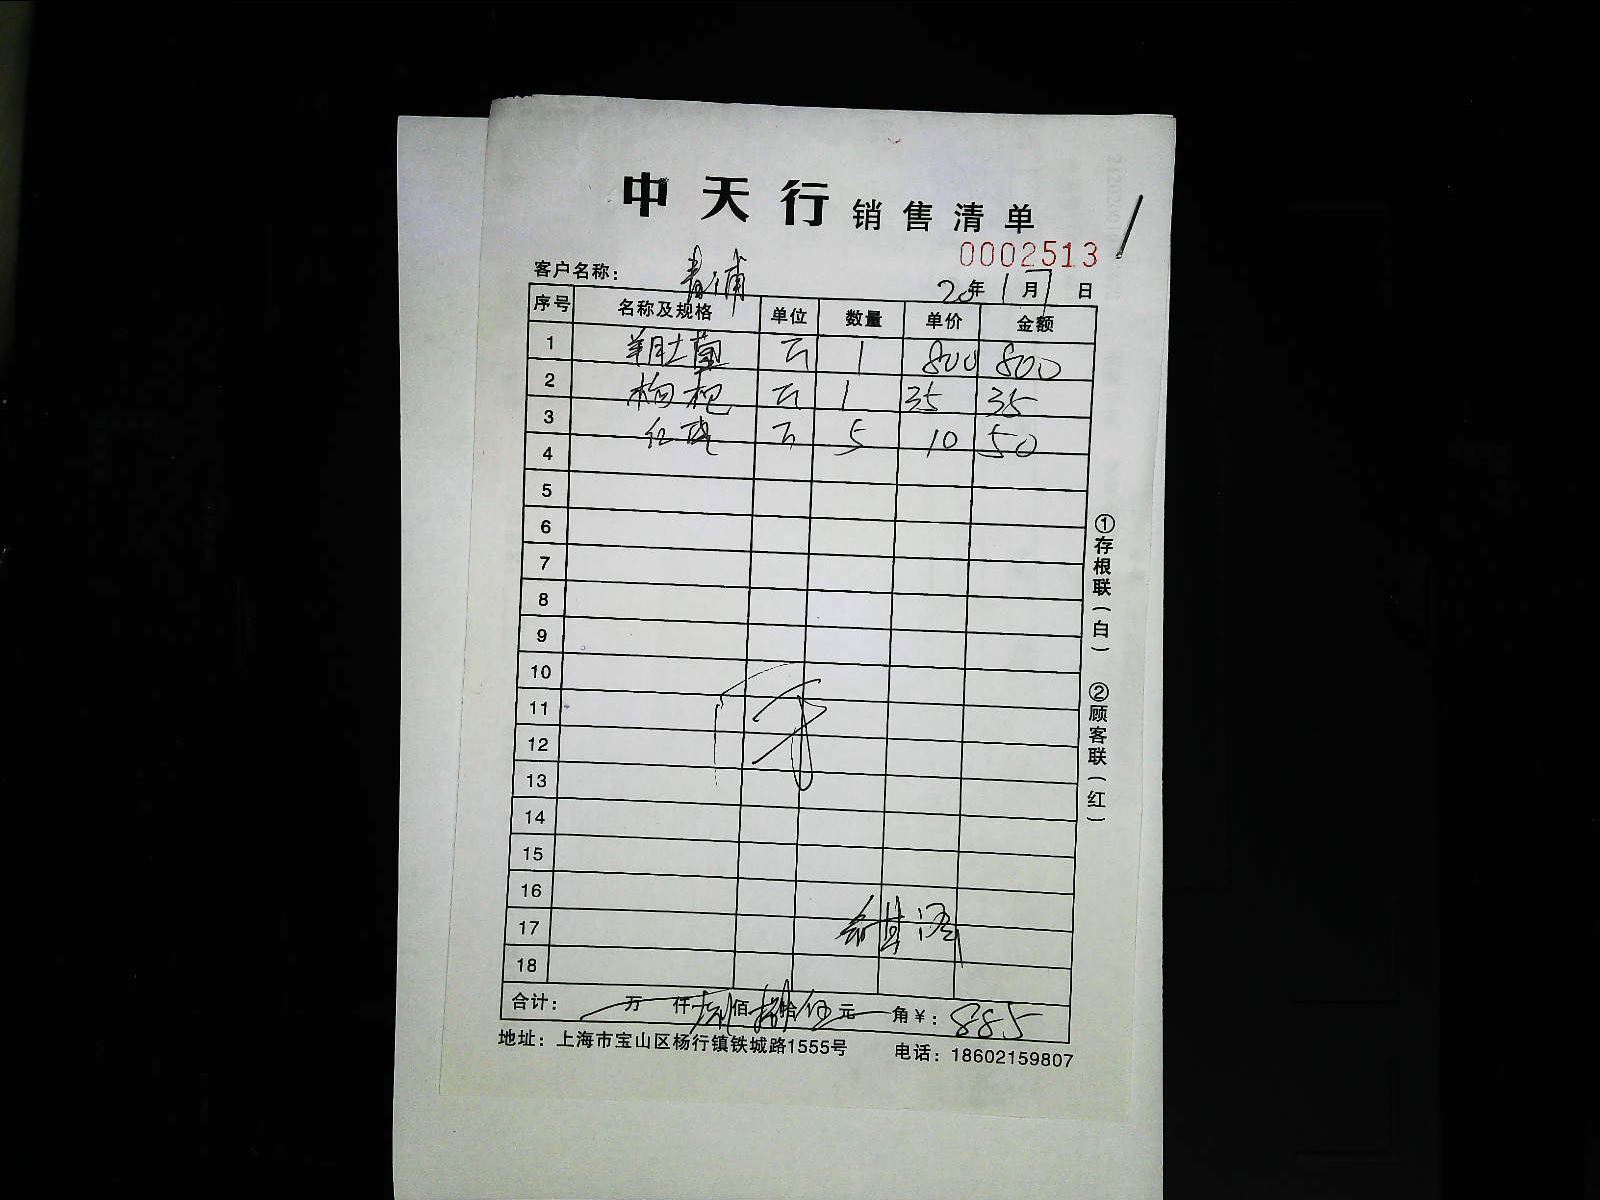 中天行销售清单
0002513
客户名称： 青浦
20年 1月7日
序号 名称及规格 单位 数量 单价 金额
1 羊肚菌 斤 1 800 800
2 枸杞 斤 1 35 35
3 红 斤 5 10 50
4
5
6
7
8
9
10
11
12
13
14
15
16
17
18
合计： 万 仟 捌佰捌拾伍元 角￥：885
地址：上海市宝山区杨行镇铁城路1555号 电话：18602159807
①存根联（白） ②顾客联（红）